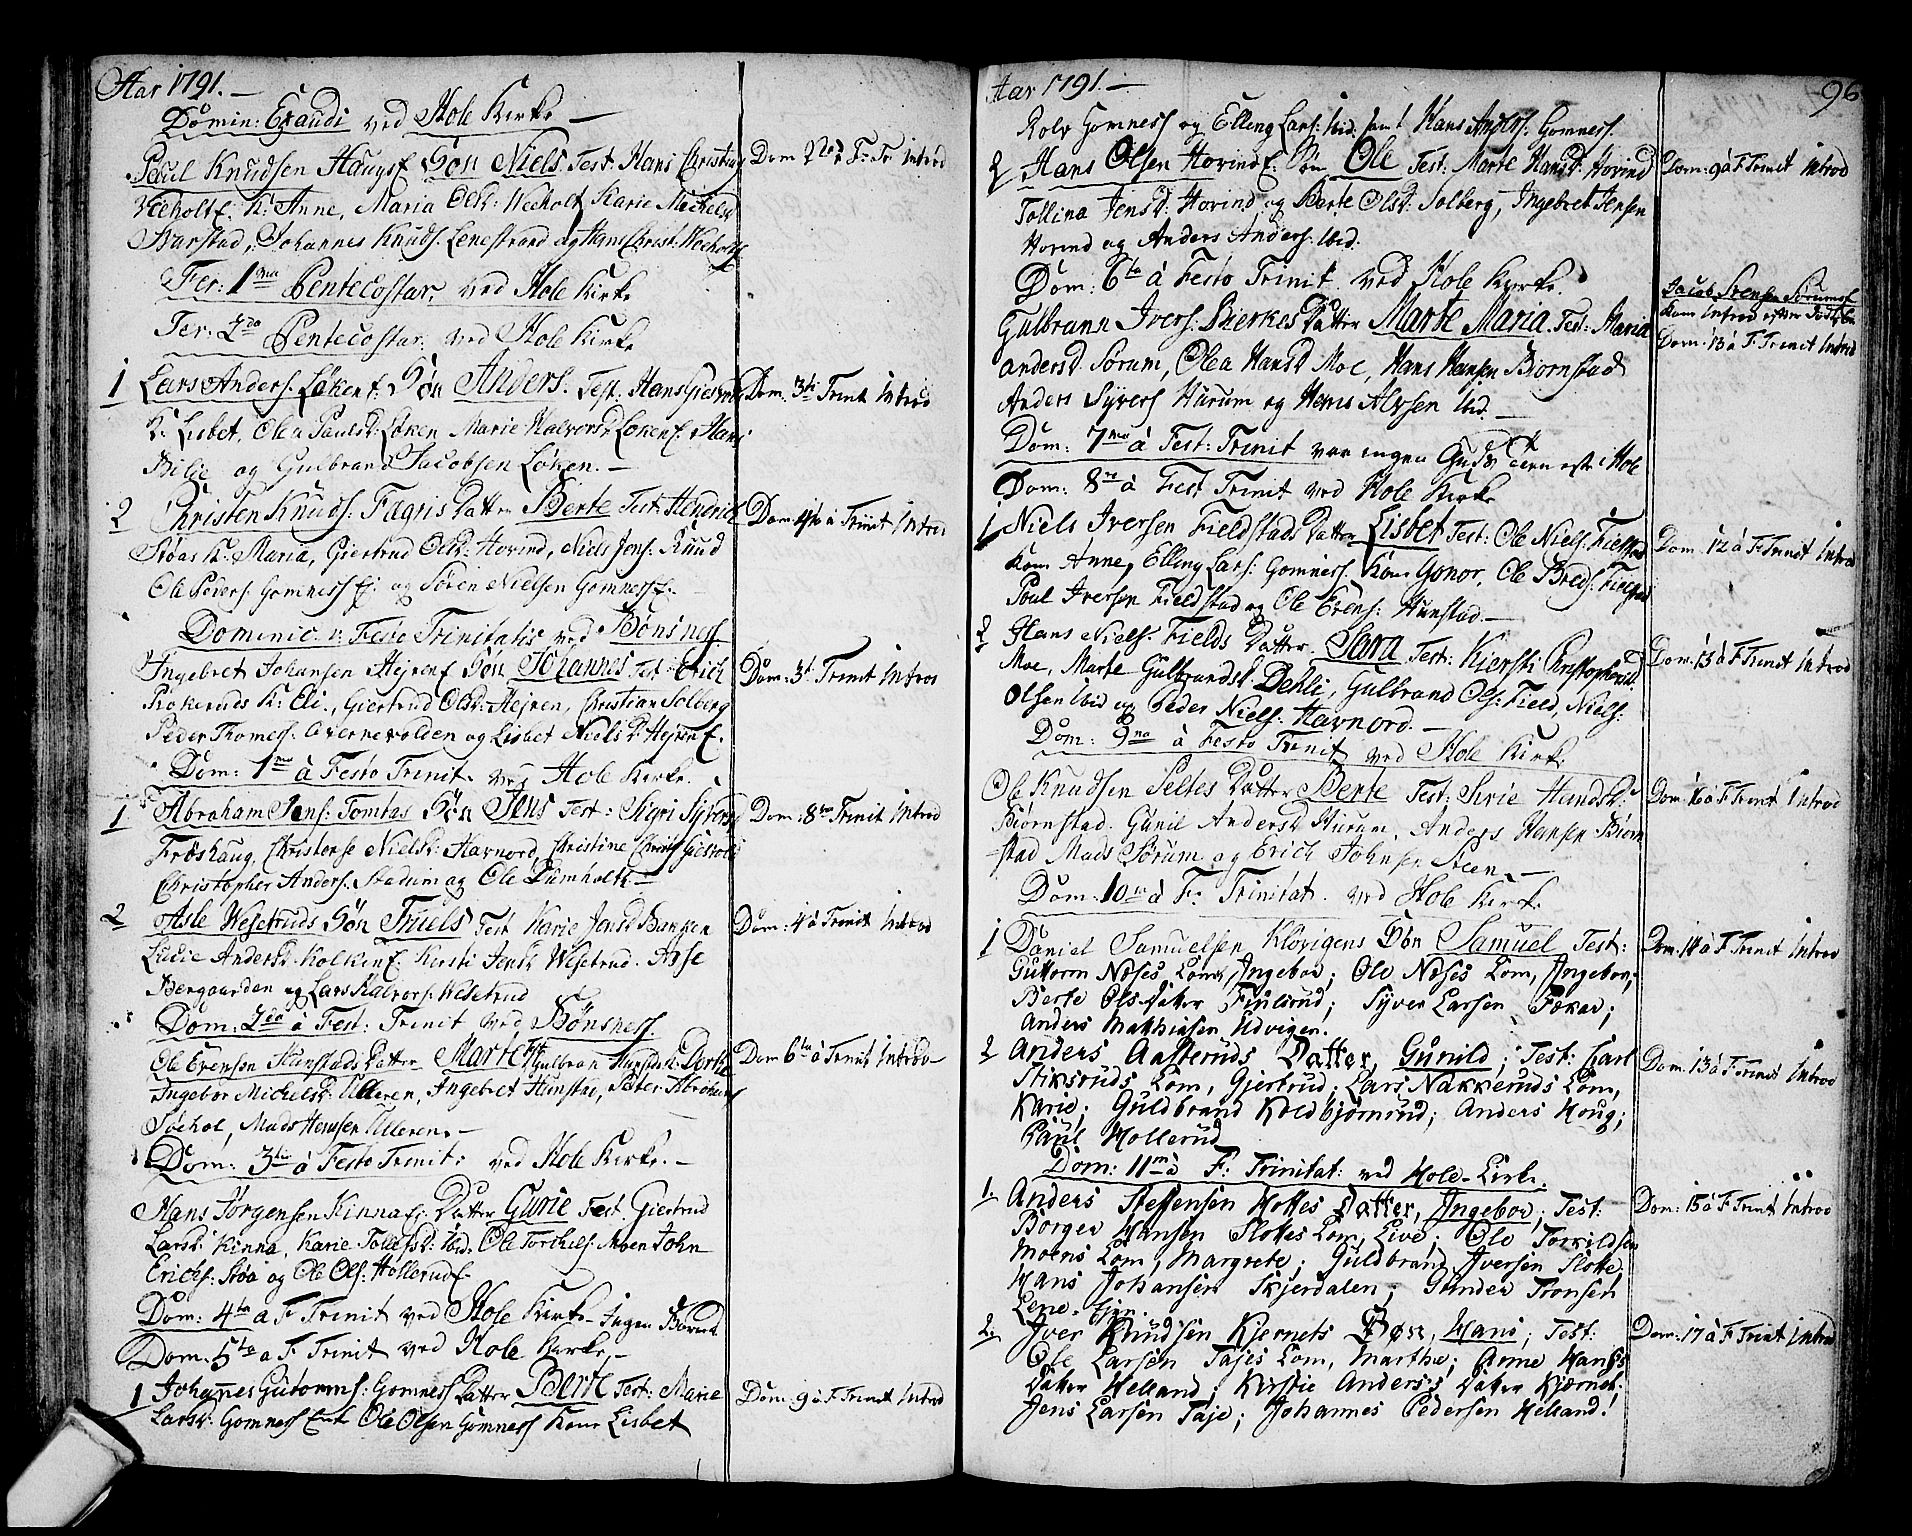 Aar 1791.—
Domin: Exaudi ved Hole Kirke —
Poul Knudsen Haugsf. Søn Niels. Test: Hans Christens
Dom 2da à F: Tr Introd
Veeholt f. K: Anne, Maria Olsd: Weeholt Karie Michelsd
Svarstad, Johannes Knuds. Lenestrand og Hans Christ: Weeholt
Fer: 1ma Pentecostar. ved Hole Kirke
Fer: 2da Pentecostar: ved Hole Kirke
1 Lars Anders. Løkens f. Søn Anders. Test: Hans
Dom: 3tia Trinit Introd
K: Lisbet, Olea Paulsd: Løken Marie Halvorsd Lokenf. Hans
Bilie og Gulbrand Jacobsen Løken.—
2 Christen Knuds: Fægris Datter Berte Test: Hendrich
Dom 4ta à Trinit Introd
Støas K: Maria, Giertrud Olsd: Hovind, Niels Jens: Ruud
Ole Peders: Gomness Ej. og Søren Nielsen Gomness E.
Dominic: v: Festo Trinitatis ved Bønsnes
Ingebret Johansen Hejren f Søn Johannes Test: Erich
Dom: 3t Trinit Introd
Rokeruds K: Eli., Giertrud Olsd: Hejren, Christian Solberg
Peder Thomess. Svernevolden og Lisbet Niels D: Hejren f.
Dom: 1ma à Festo Trinit. ved Hole Kirke.
1 Abraham Jens: Tomtas Søn Jens Test: Sigri Syversd
Dom: 8va Trinit Introd
Frøshaug, Christense Nielsd: Havnord, Christine
Christopher Anders. Stadum og Ole Dumholt—
2 Asle Wesetruds Søn Truels Test Karie Jensd
Dom: 4 à Trinit Introd
Lucie Andersd. Kolkinf. Kirsti Jensd Wesetrud. Asle
Bergaarden og Lars Halvors: Wesetrud
Dom: 2da à Fest: Trinit ved Bønsness.
Ole Evensen Hunstads Datter Marte Test Gulbran K: Dorte
Dom 6ta à Trinit Introd
Ingebor Michelsd: Ulleren, Ingebret Hunstad, Peter Abrahams
Søehol, Mads Hansen Ulleren.—
Dom: 3tia à Festo Trinit: ved Hole Kirke.—
Hans Jørgensen Kinna Ej: Datter Gurie Test: Giertrud
Larsd: Kinna, Karie Tollefsd: Ibid. Ole Torchels. Moen John
Erichs: Støa og Ole Ols: Hollerud f.
Dom: 4ta a F Trinit ved Hole Kirke - Ingen Børn
Dom: 5ta a F Trinit ved Hole Kirke,—
1 Johannes Gutorms: Gomness Datter Berte Test: Marie
Dom: 9 à F Trinit Introd
Larsd: Gomness Ent Ole Olsen Gomness Kone Lisbet
96
Aar 1791.—
Rolv Gomness og Elling Lars: Ibid: samt Hans Anders: Gomness.
2 Hans Olsen Hovind f. Søn Ole Test: Marte Hansd: Hovind
Dom: 9 à F Trinit Introd
Tollina Jensd: Hovind og Berte Olsd: Solberg, Ingebret Jensen
Hovind og Anders Anders: Ibid.
Dom: 6ta à Festo Trinit. ved Hole Kirke.
Jacob Svensen Sørums
Kone Introd efter
Gulbrann Ivers: Bierkes Datter Marte Maria. Test: Maria
Dom: 13 à F. Trinit Introd
Andersd Sørum, Olea Hansd Moe, Hans Hansen Biornstad
Anders Syvers Hurum og Hans Alvsen Ibid.—
Dom: 7ma à Fest: Trinit var ingen Guds tieneste i Hole
Dom: 8va à Fest Trinit ved Hole Kirke
1 Niels Iversen Fieldstads Datter Lisbet Test: Ole Niels: Fieldstad
Dom: 12 à F. Trinit Introd
Kone Anne, Elling Lars: Gomness. Kone Gonor, Ole Breds: Fiegstad
Poul Iversen Fieldstad og Ole Evens: Hunstad.—
2 Hans Niels: Fields Datter. Sara Test: Kiersti Christophersd.
Dom: 13 à F Trinit Introd
Moe, Marte Gulbrandsd. Dehli, Gulbrand Ols: Field, Niels:
Olsen Ibid og Peder Niels: Havnord.—
Dom: 9na à Festo Trinit ved Hole Kirke
Ole Knudsen Seltes Datter Berte Test: Sirie Hansd:
Dom: 16 à F Trinit Introd
Biørnstad. Gunil Andersd Hurum, Anders Hansen Biørn
-stad Mads Sørum og Erich Johnsen Steen.—
Dom: 10ma à F: Trinitat. ved Hole Kirke
1 Daniel Samuelsen Kløvigens Søn Samuel Test:
Dom: 14 à F Trinit Introd
Guttorm Næses Kone, Ingebor; Ole Næses Kone, Ingebor;
Berte Olsdatter Finsrud; Syver Larsen Fæker;
Anders Matthiasen Udvigen.
2 Anders Aasteruds Datter, Gunild; Test: Carl
Dom: 13 à F Trinit Introd
Stiksruds Kone, Gjertrud; Lars Nakkeruds Kone,
Karie; Guldbrand Koldbjørnsrud; Anders Houg;
Paul Hollerud
Dom: 11ma à F: Trinitat: ved Hole-Kirke.
1. Anders Steffensen Hottes Datter, Ingebor; Test:
Dom: 15 à F Trinit Introd
Børger Hansen Slottes Kone, Live; Ole Torkildsen
Moens Kone, Margrete; Guldbrand Iversen Slotte.
Hans Johansen Skjerdalen; Gunder Tronsen
Lene-Ejer.
2. Iver Knudsen Kjernets Søn, Hans; Test:
Dom: 17 à F Trinit Introd
Ole Larsen Tajes Kone, Marthe; Anne Hans's
Datter Helland; Kirstie Anders's Datter Kjærnet:
Jens Larsen Taje; Johannes Pedersen Helland.